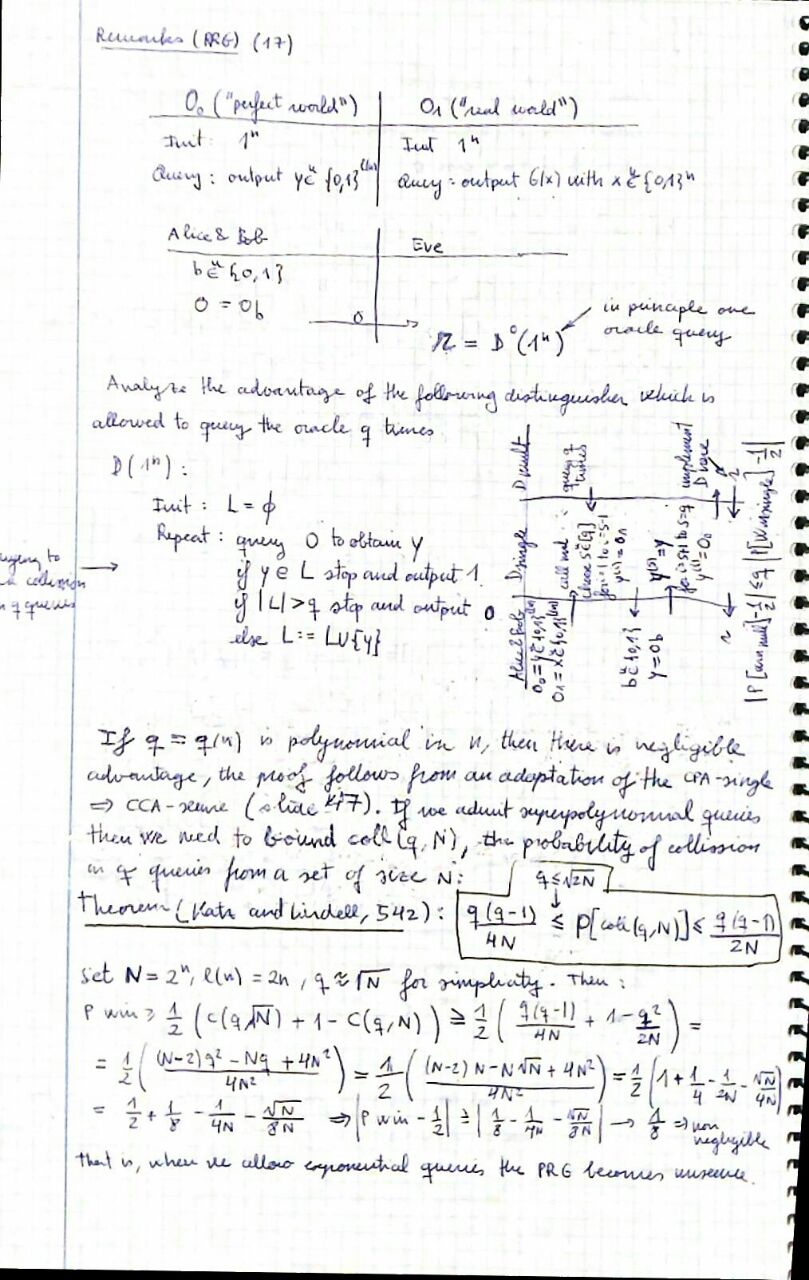 Remarks (PRG) (17)
O₀ ("perfect world") O₁ ("real world")
Init: 1ⁿ Init 1ⁿ
Query: output y ∈ᵘ {0,1}^{l(n)} Query: output G(x) with x ∈ᵘ {0,1}ⁿ
Alice & Bob Eve
b ∈ᵘ {0,1}
O = O_b
O
r = D^O(1ⁿ)
in principle one
oracle query
Analyze the advantage of the following distinguisher which is
allowed to query the oracle q times
D(1ⁿ):
Init: L = ϕ
Repeat: query O to obtain y
if y ∈ L stop and output 1
if |L| > q stop and output 0
else L := L∪{y}
trying to
a collision
q queries
Alice & Bob D single D mult
O₀ = y ∈ᵘ {0,1}^{l(n)}
call mult
query q
times
choose s ∈ᵘ [q]
for i=1 to s-1
b ∈ᵘ {0,1}
y = O_b
y^{(s)} = y
for i=s+1 to s=q
y^{(i)} = O₀
implement
D here
r r
If q = q(n) is polynomial in n, then there is negligible
advantage, the proof follows from an adaptation of the CPA-single
⇒ CCA-secure (slide 47). If we admit superpolynomial queries
then we need to bound coll(q, N), the probability of collision
in q queries from a set of size N:
q ≤ √2N
Theorem (Katz and Lindell, 542): q(q-1)/4N ≤ P[coll(q,N)] ≤ q(q-1)/2N
Set N = 2ⁿ, l(n) = 2n, q ≈ √N for simplicity. Then:
P win ≥ 1/2 (C(q,√N) + 1 - C(q,N)) ≥ 1/2 ( q(q-1)/4N + 1 - q²/2N ) =
= 1/2 ( (N-2)q² - Nq + 4N² / 4N² ) = 1/2 ( (N-2)N - N√N + 4N² / 4N² ) = 1/2 ( 1 + 1/4 - 1/2N - √N/4N )
= 1/2 + 1/8 - 1/4N - √N/8N ⇒ |P win - 1/2| ≥ | 1/8 - 1/4N - √N/8N | → 1/8 ⇒ non
negligible
That is, when we allow exponential queries the PRG becomes insecure.